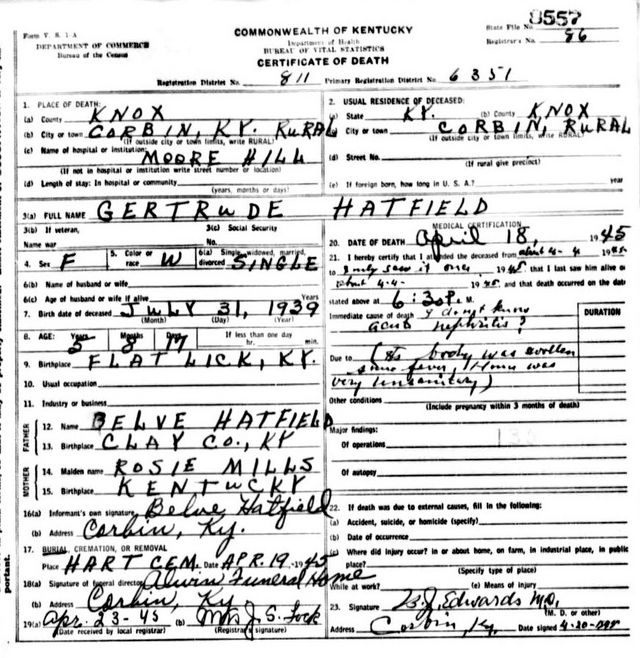 8557
Form V. S. 1-A
COMMONWEALTH OF KENTUCKY
State File No.
DEPARTMENT OF COMMERCE
Department of Health
Registrar's No. 86
Bureau of the Census
BUREAU OF VITAL STATISTICS
CERTIFICATE OF DEATH
Registration District No. 811 Primary Registration District No. 6351
1. PLACE OF DEATH:
(a) County KNOX
(b) City or town CORBIN, KY. RURAL
(If outside city or town limits, write RURAL)
(c) Name of hospital or institution:
MOORE HILL
(If not in hospital or institution write street number or location)
(d) Length of stay: In hospital or community
(years, months or days)
2. USUAL RESIDENCE OF DECEASED:
(a) State KY. (b) County KNOX
(c) City or town CORBIN, RURAL
(If outside city or town limits, write RURAL)
(d) Street No.
(If rural give precinct)
(e) If foreign born, how long in U. S. A.? year
3(a) FULL NAME GERTRUDE HATFIELD
3(b) If veteran, 3(c) Social Security
Name war No.
4. Sex F 5. Color or race W 6(a) Single, widowed, married, divorced SINGLE
6(b) Name of husband or wife
6(c) Age of husband or wife if alive Years
7. Birth date of deceased JULY 31, 1939
(Month) (Day) (Year)
8. AGE: Years Months Days If less than one day
5 8 17 hr. min.
9. Birthplace FLAT LICK, KY.
10. Usual occupation
11. Industry or business
FATHER
12. Name BELVE HATFIELD
13. Birthplace CLAY CO., KY
MOTHER
14. Maiden name ROSIE MILLS
15. Birthplace KENTUCKY
16(a) Informant's own signature Belve Hatfield
(b) Address Corbin, Ky.
17. BURIAL, CREMATION, OR REMOVAL
Place HART CEM. Date APR. 19 - 1945
18(a) Signature of funeral director Funeral Home
(b) Address Corbin, Ky
19(a) Apr. 23-45 (b) Mrs J. S.
(Date received by local registrar) (Registrar's signature)
MEDICAL CERTIFICATION
20. DATE OF DEATH April 18, 1945
21. I hereby certify that I attended the deceased from about 4-4 1945
to I only saw it once, 1945 that I last saw him alive on
about 4-4- 1945, and that death occurred on the date
stated above at 6:30 P. M.
Immediate cause of death I dont know
acute nephritis?
DURATION
Due to (Its body was swollen
some fever, Home was
very unsanitary)
Other conditions
(Include pregnancy within 3 months of death)
Major findings:
Of operations
Of autopsy
22. If death was due to external causes, fill in the following:
(a) Accident, suicide, or homicide (specify)
(b) Date of occurrence
(c) Where did injury occur? in or about home, on farm, in industrial place, in public
place?
(Specify type of place)
While at work? (e) Means of injury
23. Signature B. J. Edwards M.D.
(M. D. or other)
Address Corbin, Ky. Date signed 4-20-
portant.